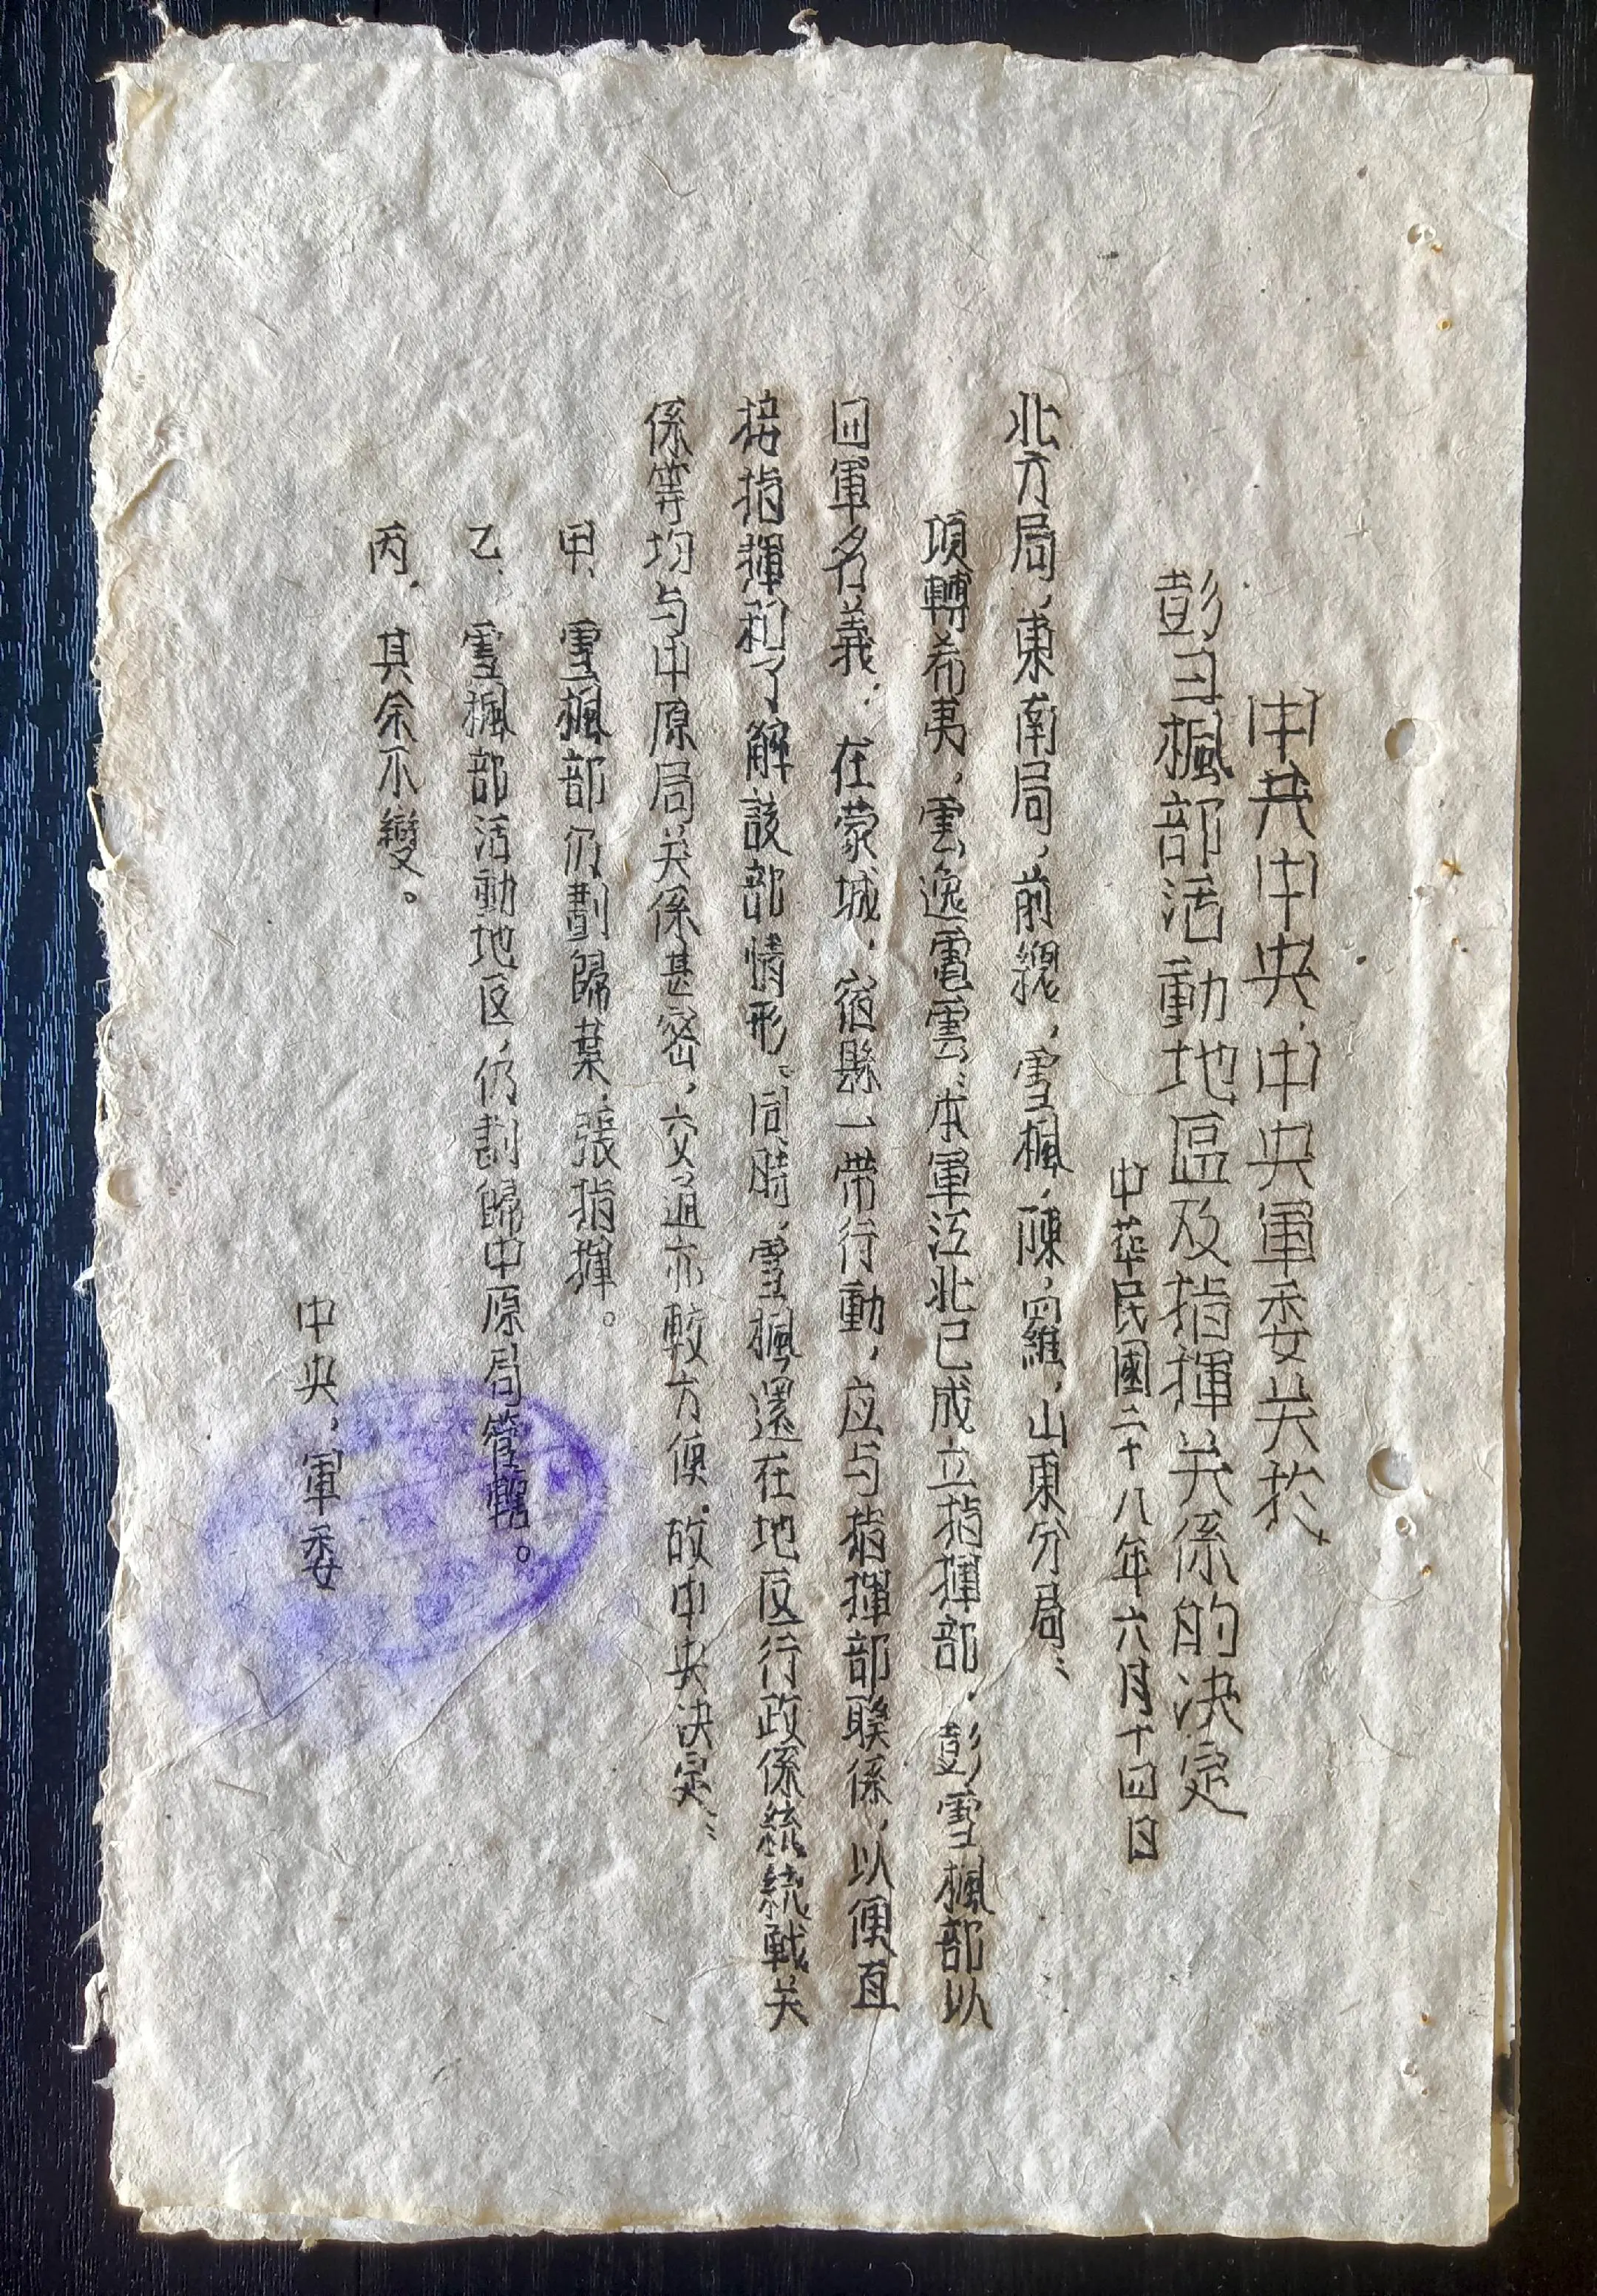 中共中央,中央軍委关於
彭彐楓部活動地區及指揮关係的决定
中華民國二十八年六月十四日
北方局,東南局,前總,雪楓,陳,羅,山東分局:
項轉希夷,雲逸電雲:本軍江北已成立指揮部,彭雪楓部以
四軍名義,在蒙城,宿縣一带行動,应与指揮部聯係,以便直
接指揮和了解該部情形。同時,雪楓還在地区行政係統統戰关
係等均与中原局关係甚密,交通亦較方便,故中央决定:
甲、雪楓部仍劃歸葉,張指揮。
乙、雪楓部活動地区,仍劃歸中原局管轄。
丙、其余不變。
中央,軍委